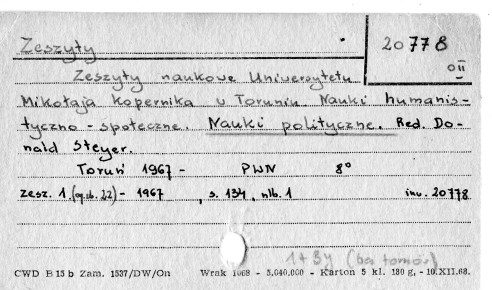 Zeszyty
20778
II
Zeszyty naukowe Uniwersytetu
Mikołaja Kopernika w Toruniu Nauki humanis-
tyczno-społeczne. Nauki polityczne. Red. Do-
nald Steyer.
Toruń 1967- PWN 8°
zesz. 1. (og. sb. 22) - 1967, s. 134, nlb. 1 inw. 20778
CWD B 13 b Zam. 1537/DW/On Wrak 1068 - 5.040.000 - Karton 5 kl. 180 g, - 10.XII.68.